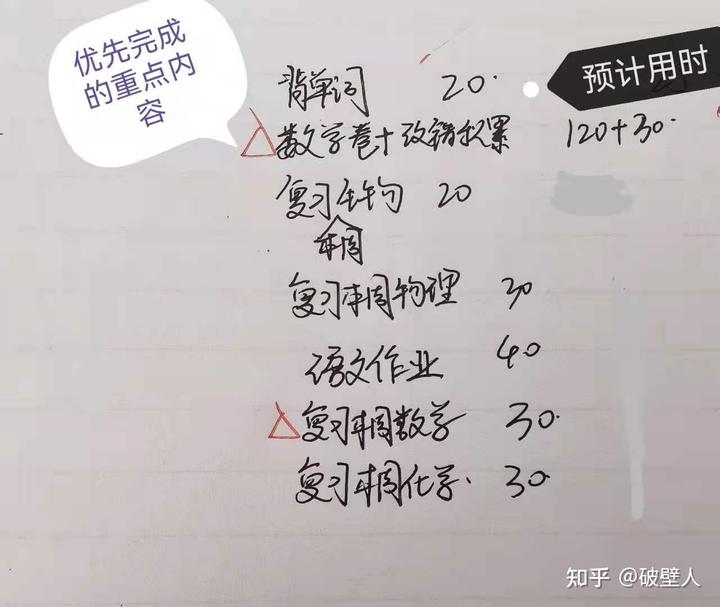 优先完成
的重点内
容
预计用时
背单词 20.
数学卷+改错积累 120+30.
复习生物 20
本周
复习本周物理 30
语文作业 40
复习本周数学 30.
复习本周化学. 30
知乎 @破壁人